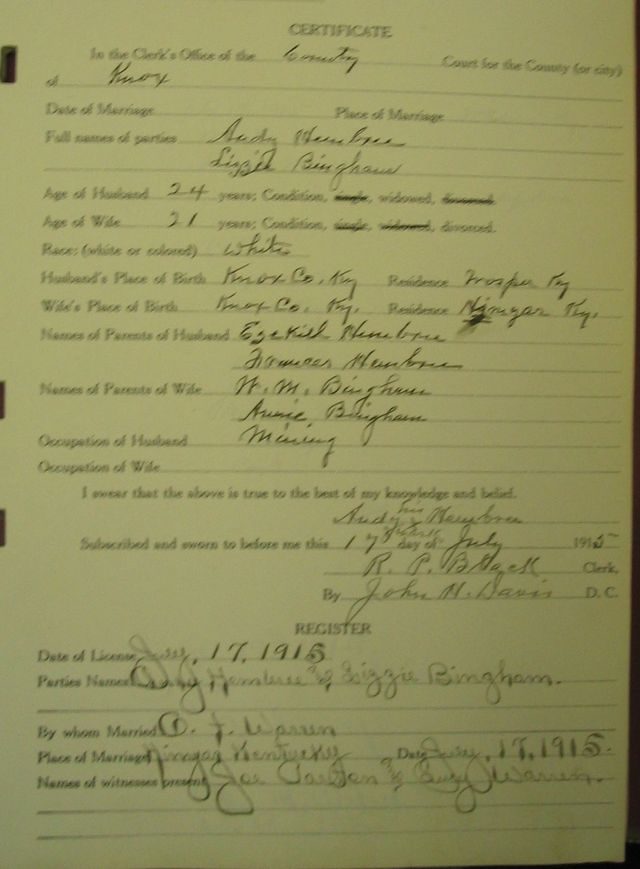 CERTIFICATE
In the Clerk's Office of the County Court for the County (or city)
of Knox
Date of Marriage Place of Marriage
Full names of parties Andy Hembree
Lizzie Bingham
Age of Husband 24 years; Condition, single, widowed, divorced.
Age of Wife 21 years; Condition, single, widowed, divorced.
Race: (white or colored) White
Husband's Place of Birth Knox Co. Ky Residence Trosper Ky
Wife's Place of Birth Knox Co. Ky. Residence Ky.
Names of Parents of Husband Ezekill Hembree
Frances Hembree
Names of Parents of Wife W. M. Bingham
Annie Bingham
Occupation of Husband Mining
Occupation of Wife
I swear that the above is true to the best of my knowledge and belief.
Andy his x mark Hembree
Subscribed and sworn to before me this 17 day of July 1915
R. P. Black Clerk,
By John H. Davis D. C.
REGISTER
Date of License July, 17, 1915
Parties Names Andy Hembree & Lizzie Bingham.
By whom Married Warren
Place of Marriage Kentucky Date July, 17, 1915.
Names of witnesses present Joe & Warren.